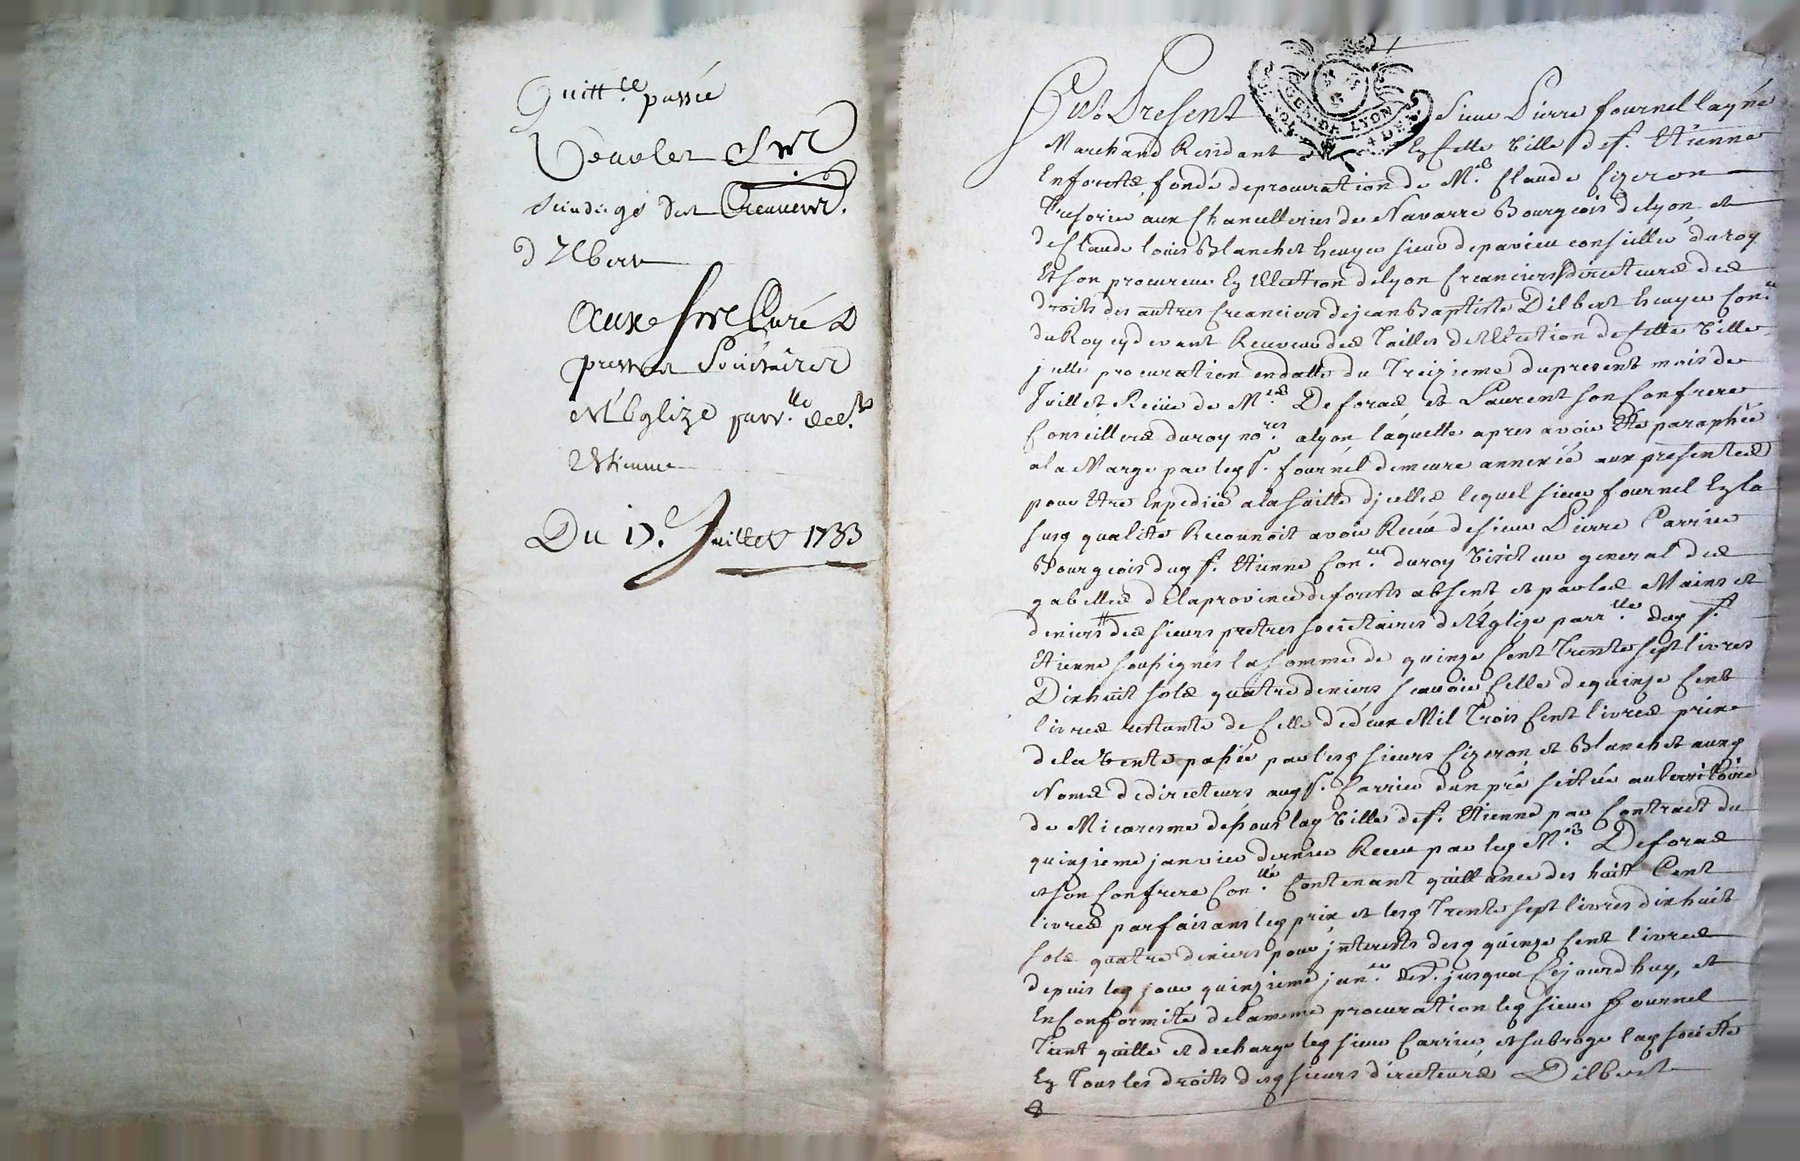 Quitt.ce passée
par les Srs
scindiqs des Creanciers
d'Ilbert
Aux srs Curé &
prestres Sociétaires
de l'Eglize parr.lle de St
Etienne
Du 17.e Juillet 1733
GEN. DE LYON
Fut Present Sieur Pierre fournel layné
Marchand Residant En Cette Ville de St. Etienne
En forests, fondé de procuration de Mrs. Claude Cizeron
Tresorier aux Chancelleries de Navarre Bourgeois de Lyon et
de Claude Louis Blanchet Ecuyer sieur de pavieu conseiller du roy
Et son procureur En Election de lyon Creanciers directeurs des
droits des autres Creanciers de jean Baptiste Dilbert Ecuyer Con.er
du Roy cy devant Receveur des Tailles de l'Election de Cette Ville
jcelle procuration en datte du Treizieme du present mois de
Juillet Reçüe de M.es Deforas et Laurent son Confrere
Conseillers du roy no.res a lyon laquelle apres avoir Eté paraphée
a la Marge par led S.r fournel demeure annexée aux presentes
pour Etre Expediée a la suitte d'jcelles lequel sieur fournel En la
susd qualité Reconnoit avoir Receu de sieur Pierre Carrier
Bourgeois dud St. Etienne Con.er du roy Visiteur general des
gabelles de la province de forests absent et par les Mains et
deniers des sieurs pretres societaires de l'Eglize parr.lle dud St.
Etienne soussignés la somme de quinze Cent Trente sept livres
Dixhuit sols quatre deniers scavoir Celle de quinze Cent
livres restante de Celle de deux Mil Trois Cent livres prix
de la Vente passée par lesd sieurs Cizeron et Blanchet aux d
Noms de directeurs aud S.r Carrier d'un pré scitüé au territoire
de Micaresme dessous lad Ville de St. Etienne par Contract du
quinzieme janvier dernier Receu par led M.e Deforas
et son Confrere Con.er Contenant quittance des huit Cent
livres parfaisans led prix et lesd Trente sept livres dixhuit
sols quatre deniers pour jnterests desd quinze Cent livres
depuis led jour quinzieme jan.er der. jusqua Cejourd'huy, et
En Conformité de la meme procuration led sieur fournel
Tient quitte et decharge led sieur Carrier, et subroge lad societé
En Tous les droits desd sieurs directeurs Dilbert